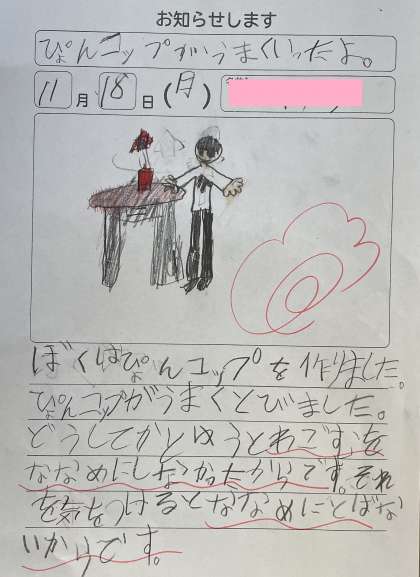 お知らせします
ぴょんコップがうまくいったよ。
11月18日(月)
ぼくはぴょんコップを作りました。
ぴょんコップがうまくとびました。
どうしてかとゆうとわごむを
ななめにしなかったからです。それ
を気をつけるとななめにとばな
いからです。